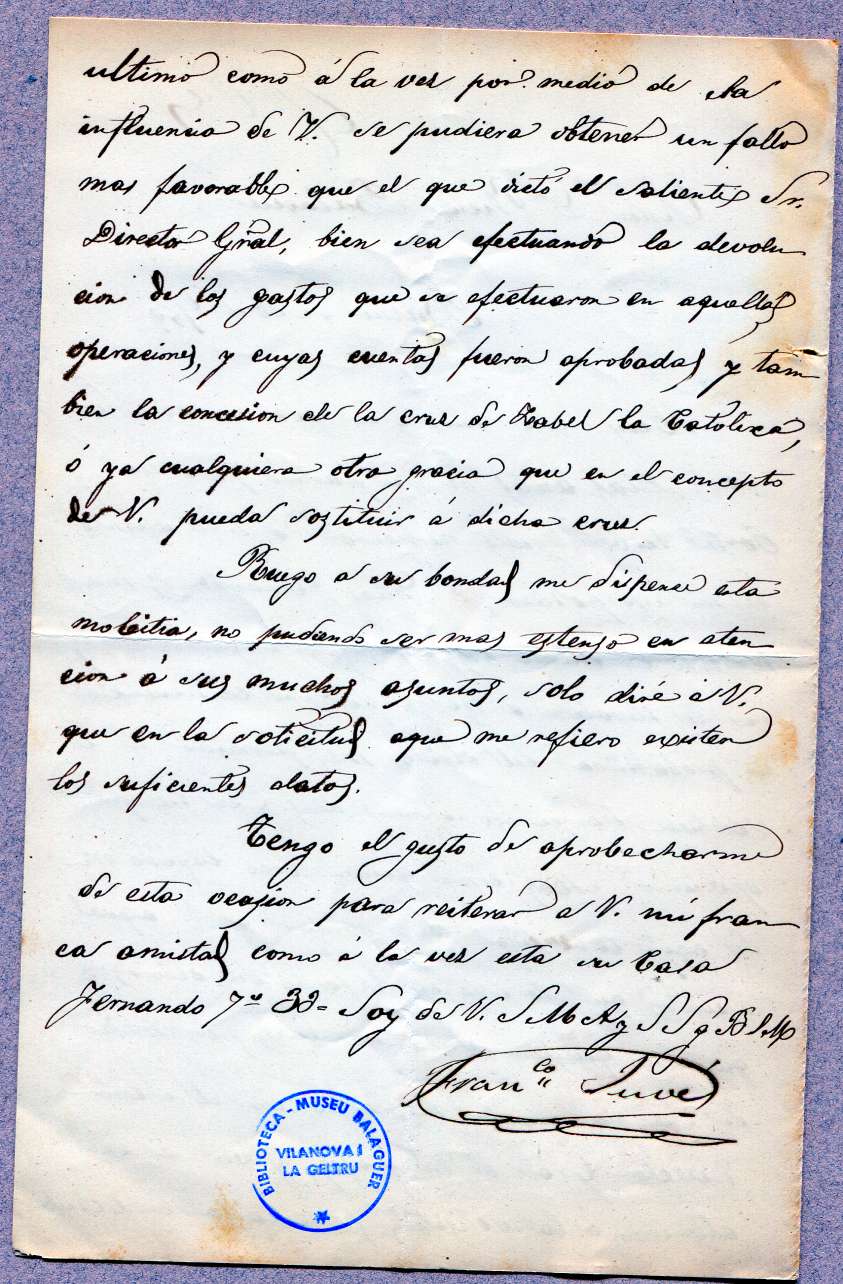 ultimo como á la ves por medio de la
influencia de V. se pudiera obtener un fallo
mas favorable que el que dictó el saliente Sr.
Director Gñal, bien sea efectuando la devolu
cion de los gastos que se efectuaron en aquellas
operaciones, y cuyas cuentas fueron aprobadas y tam
bien la concesion de la cruz de Isabel la Catolica,
ó ya cualquiera otra gracia que en el concepto
de V. pueda sostituir á dicha cruz.
Ruego a su bondad me dispense esta
molestia, no pudiendo ser mas estenso en aten
cion á sus muchos asuntos, solo diré á V.
que en la solicitud aque me refiero existen
los suficientes datos.
Tengo el gusto de aprobecharme
de esta ocasion para reiterar a V. mi fran
ca amistad como á la ves esta su Casa
Fernando 7º 39 = Soy de V. S M A y S S q B S M
Fran.co Juvés
BIBLIOTECA - MUSEU BALAGUER
VILANOVA I
LA GELTRU